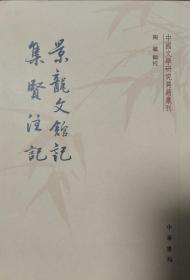 中國文學研究典籍叢刊
陶敏 輯校
景龍文館記
集賢注記
中華書局